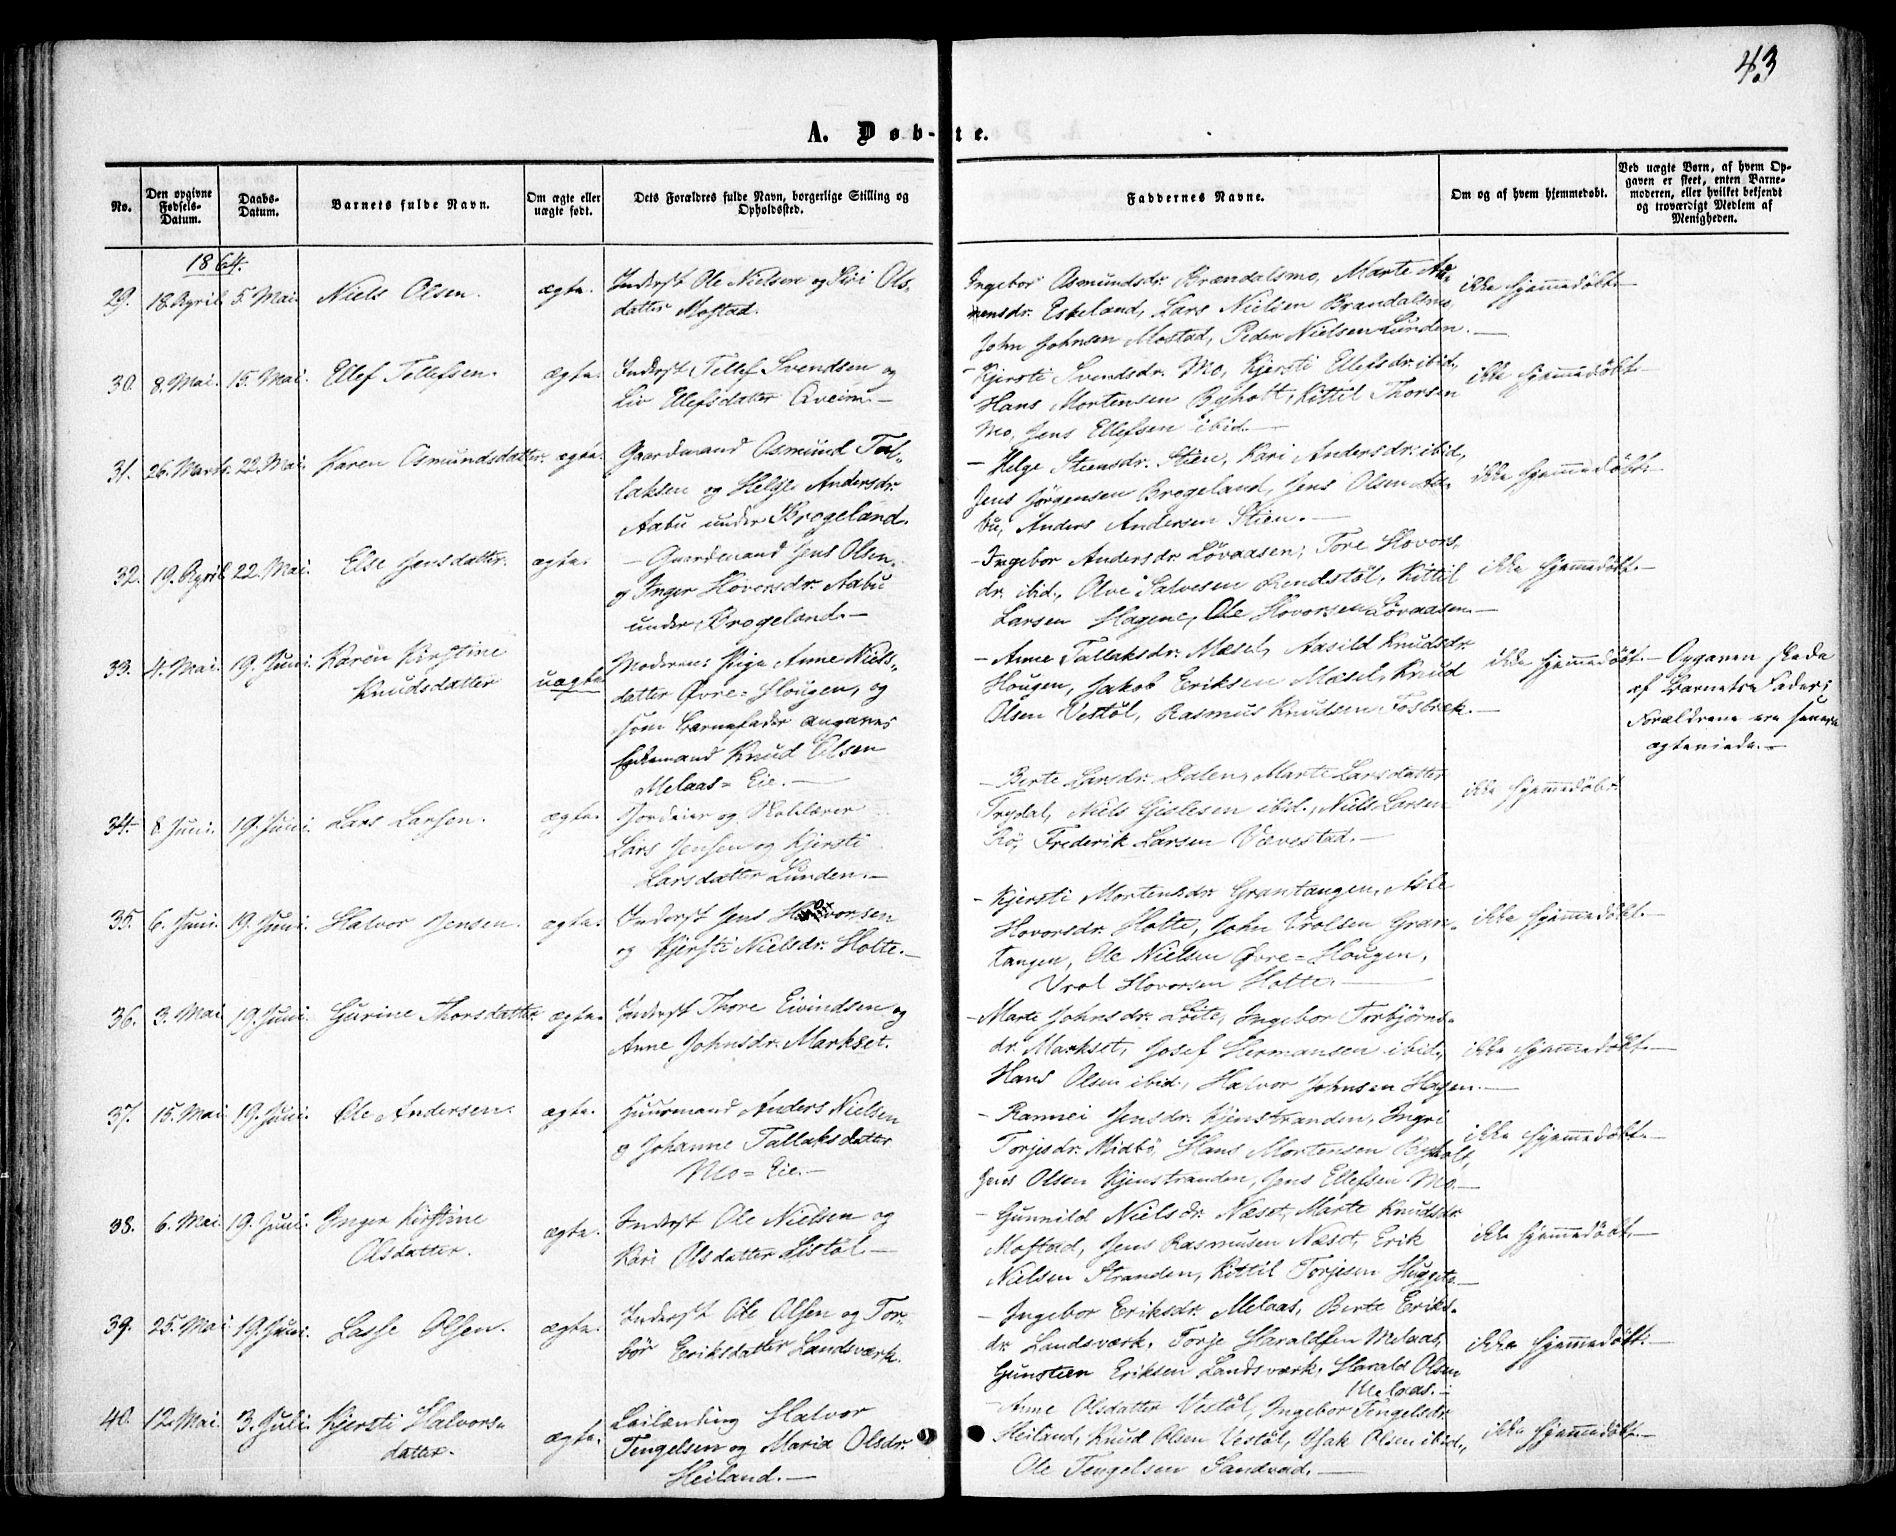 43
A. Døbte.
No.
Den opgivne Fødsels-Datum.
Daabs-Datum.
Barnets fulde Navn.
Om ægte eller uægte født.
Dets Forældres fulde Navn, borgerlige Stilling og Opholdssted.
Faddernes Navne.
Om og af hvem hjemmedøbt.
Ved uægte Børn, af hvem Opgaven er skeet, enten Barnemoderen, eller hvilket bekjendt og troværdigt Medlem af Menigheden.
1864.
29. 18. April 5. Mai Niels Olsen. ægte.
Inderst Ole Nielsen og Siri Ols-
datter Mostad.
Ingebor Osmundsdr. Brændalsmo, Marte
Eskeland, Lars Nielsen Brandalsmo,
John Johnsen Mostad, Peder Nielsen Lunden.
ikke hjemmedøbt.
30. 8. Mai. 15. Mai. Ellef Tellefsen. ægte.
Inderst Tellef Svendsen og
Liv Ellefsdatter Qveim.
Kjersti Svendsdr. Mo, Kjersti Ellefsdr. ibid,
Hans Mortensen Byholt, Kittil Thorsen
Mo, Jens Ellefsen ibid.
ikke hjemmedøbt.
31. 26. Marts. 22. Mai. Karen Osmundsdatter. ægte.
Gaardmand Osmund Tal-
laksen og Helje Andersdr.
Aabu under Brogeland.
Helge Steensdr. Stien, Kari Andersdr. ibid,
Jens Jørgensen Brogeland, Jens Olsen Aa-
bu, Anders Andersen Stien.
ikke hjemmedøbt.
32. 19. April 22. Mai. Else Jensdatter. ægte.
Gaardmand Jens Olsen
og Inger Hovorsdr. Aabu
under Brogeland.
Ingebor Andersdr. Løvaasen, Tore Hovors-
dr. ibid., Olve Salvesen Rendstøl, Kittil
Larsen Hagene, Ole Hovorsen Løvaasen.
ikke hjemmedøbt.
33. 4. Mai. 19. Juni. Karen Kirstine
Knudsdatter uægte
Moderen: Pige Anne Niels-
datter Øvre-Hougen, og
som Barnefader angaves
Enkemand Knud Olsen
Melaas-Eie.
Anne Tallaksdr. Mæsel, Aasild Knudsdr.
Hougen, Jakob Eriksen Mæsel, Knud
Olsen Vestøl, Rasmus Knudsen Fosbæk.
ikke hjemmedøbt.
Opgaven skede
af Barnets Fader;
Forældrene ere senere
ægteviede.
34. 8 Juni. 19. Juni. Lars Larsen. ægte.
Jordeier og Skolelærer
Lars Jensen og Kjersti
Larsdatter Lunden.
Berte Larsdr. Dalen, Marte Larsdatter
Trydal, Niels Gislesen ibid., Niels Larsen
Rø, Frederik Larsen Vævestad.
ikke hjemmedøbt.
35. 6. Juni. 19. Juni. Halvor Jensen. ægte.
Inderst Jens Hovorsen
og Kjersti Nielsdr. Holte.
Kjersti Mortensdr. Grantangen, Asle
Hovorsdr. Holte, John Vrolsen Gran-
tangen, Ole Nielsen Øvre-Hougen,
Vrol Hovorsen Holte.
ikke hjemmedøbt.
36. 3. Mai 19. Juni Gurine Thorsdatter. ægte.
Inderst Thore Eivindsen og
Anne Johnsdr. Markset.
Marte Johnsdr. Løite, Ingebor Torbjørns-
dr. Markset, Josef Hermansen ibid.,
Hans Olsen ibid., Halvor Johnsen Hagen.
ikke hjemmedøbt.
37. 15. Mai 19. Juni. Ole Andersen. ægte.
Huusmand Anders Nielsen
og Johanne Tallaksdatter
Mo-Eie.
Rannei Jensdr. Kjenstranden, Ingri
Torjesdr. Midbø, Hans Mortensen Byholt,
Jens Olsen Kjenstranden, Jens Ellefsen Mo.
ikke hjemmedøbt.
38. 6. Mai 19. Juni. Inger Kirstine
Olsdatter. ægte.
Inderst Ole Nielsen og
Kari Olsdatter Listøl.
Gunnild Nielsdr. Næset, Marte Knudsdr.
Mostad, Jens Rasmusen Næset, Erik
Nielsen Stranden, Kittil Torjesen
ikke hjemmedøbt.
39. 25. Mai 19. Juni. Lasse Olsen. ægte.
Inderst Ole Olsen og Tor-
bør Eriksdatter Landsværk.
Ingebor Eriksdr. Melaas, Berte Eriks-
dr. Landsværk, Torje Haraldsen Melaas,
Gunstien Eriksen Landsværk, Harald Olsen
Melaas.
ikke hjemmedøbt.
40. 12. Mai. 3. Juli. Kjersti Halvors-
datter. ægte.
Leilænding Halvor
Tengelsen og Maria Olsdr.
Heiland.
Anne Olsdatter Vestøl, Ingebor Tengelsdr.
Heiland, Knud Olsen Vestøl, Isak Olsen ibid.,
Ole Tengelsen Sandvad.
ikke hjemmedøbt.